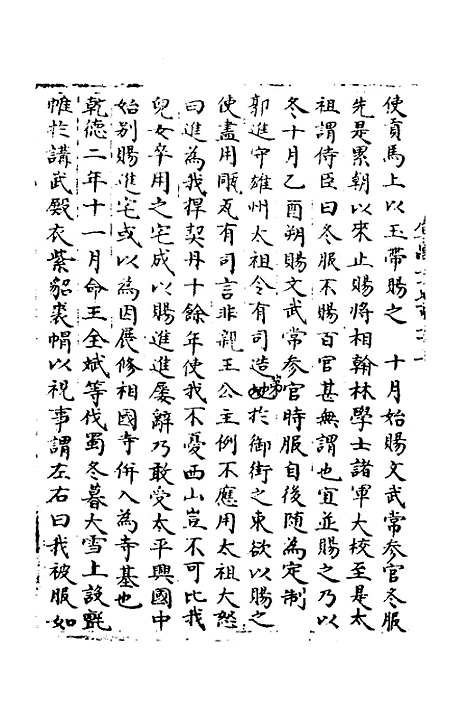 使貢馬上以玉帶賜之　十月始賜文武常參官冬服
先是累朝以來止賜將相翰林學士諸軍大校至是太
祖謂侍臣曰冬服不賜百官甚無謂也宜並賜之乃以
冬十月乙酉朔賜文武常參官時服自後隨為定制
郭進守雄州太祖令有司造第於御街之東欲以賜之
使盡用㼧瓦有司言非親王公主例不應用太祖大怒
曰進為我捍契丹十餘年使我不憂西山豈不可比我
兒女卒用之宅成以賜進進屢辭乃敢受太平興國中
始别賜進宅或以為因展修相國寺併入為寺基也
乾德二年十一月命王全斌等伐蜀冬暮大雪上設氊
帷於講武殿衣紫貂裘帽以視事謂左右曰我被服如